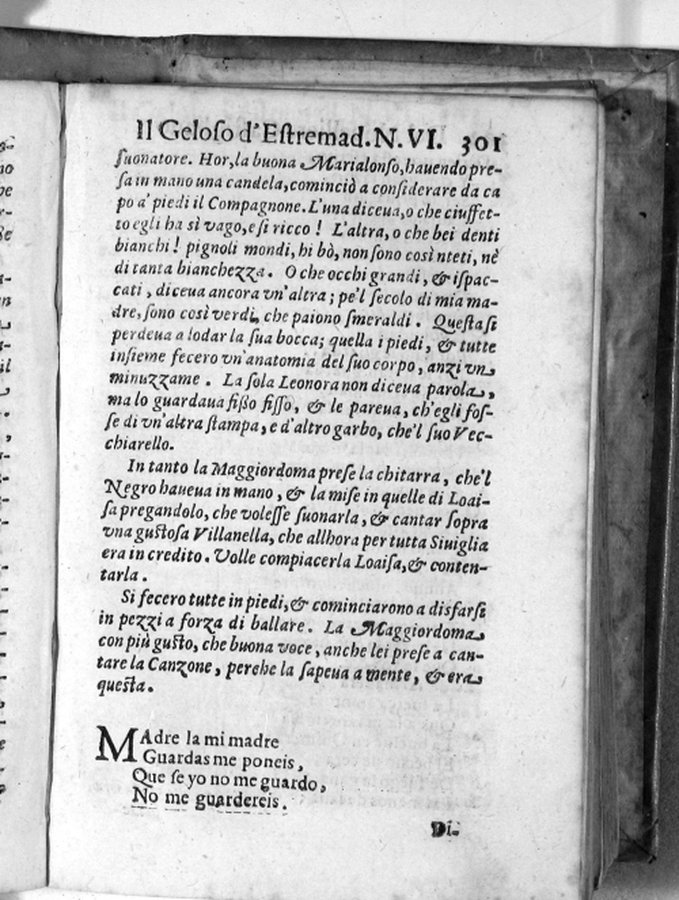 Il Geloſo d'Eſtremad. N. VI. 301
ſuonatore. Hor, la buona Marialonſo, hauendo pre-
ſa in mano una candela, cominciò a conſiderare da ca
po a' piedi il Compagnone. L'una diceua, o che ciuffet-
to egli ha sì vago, e ſi ricco! L'altra, o che bei denti
bianchi! pignoli mondi, hi bò, non ſono così nteti, nè
di tanta bianchezza. O che occhi grandi, & iſpac-
cati, diceua ancora vn'altra; pe'l ſecolo di mia ma-
dre, ſono così verdi, che paiono ſmeraldi. Queſta ſi
perdeua a lodar la ſua bocca; quella i piedi, & tutte
inſieme fecero vn'anatomia del ſuo corpo, anzi vn
minuzzame. La ſola Leonora non diceua parola,
ma lo guardaua fißo fiſſo, & le pareua, ch'egli foſ-
ſe di vn'altra ſtampa, e d'altro garbo, che'l ſuo Vec-
chiarello.
In tanto la Maggiordoma preſe la chitarra, che'l
Negro haueua in mano, & la miſe in quelle di Loai-
ſa pregandolo, che voleſſe ſuonarla, & cantar ſopra
vna guſtoſa Villanella, che allhora per tutta Siuiglia
era in credito. Volle compiacerla Loaiſa, & conten-
tarla.
Si fecero tutte in piedi, & cominciarono a disfarſi
in pezzi a forza di ballare. La Maggiordoma
con più guſto, che buona voce, anche lei preſe a can-
tare la Canzone, perche la ſapeua a mente, & era
queſta.
MAdre la mi madre
Guardas me poneis,
Que ſe yo no me guardo,
No me guardereis.
Di-